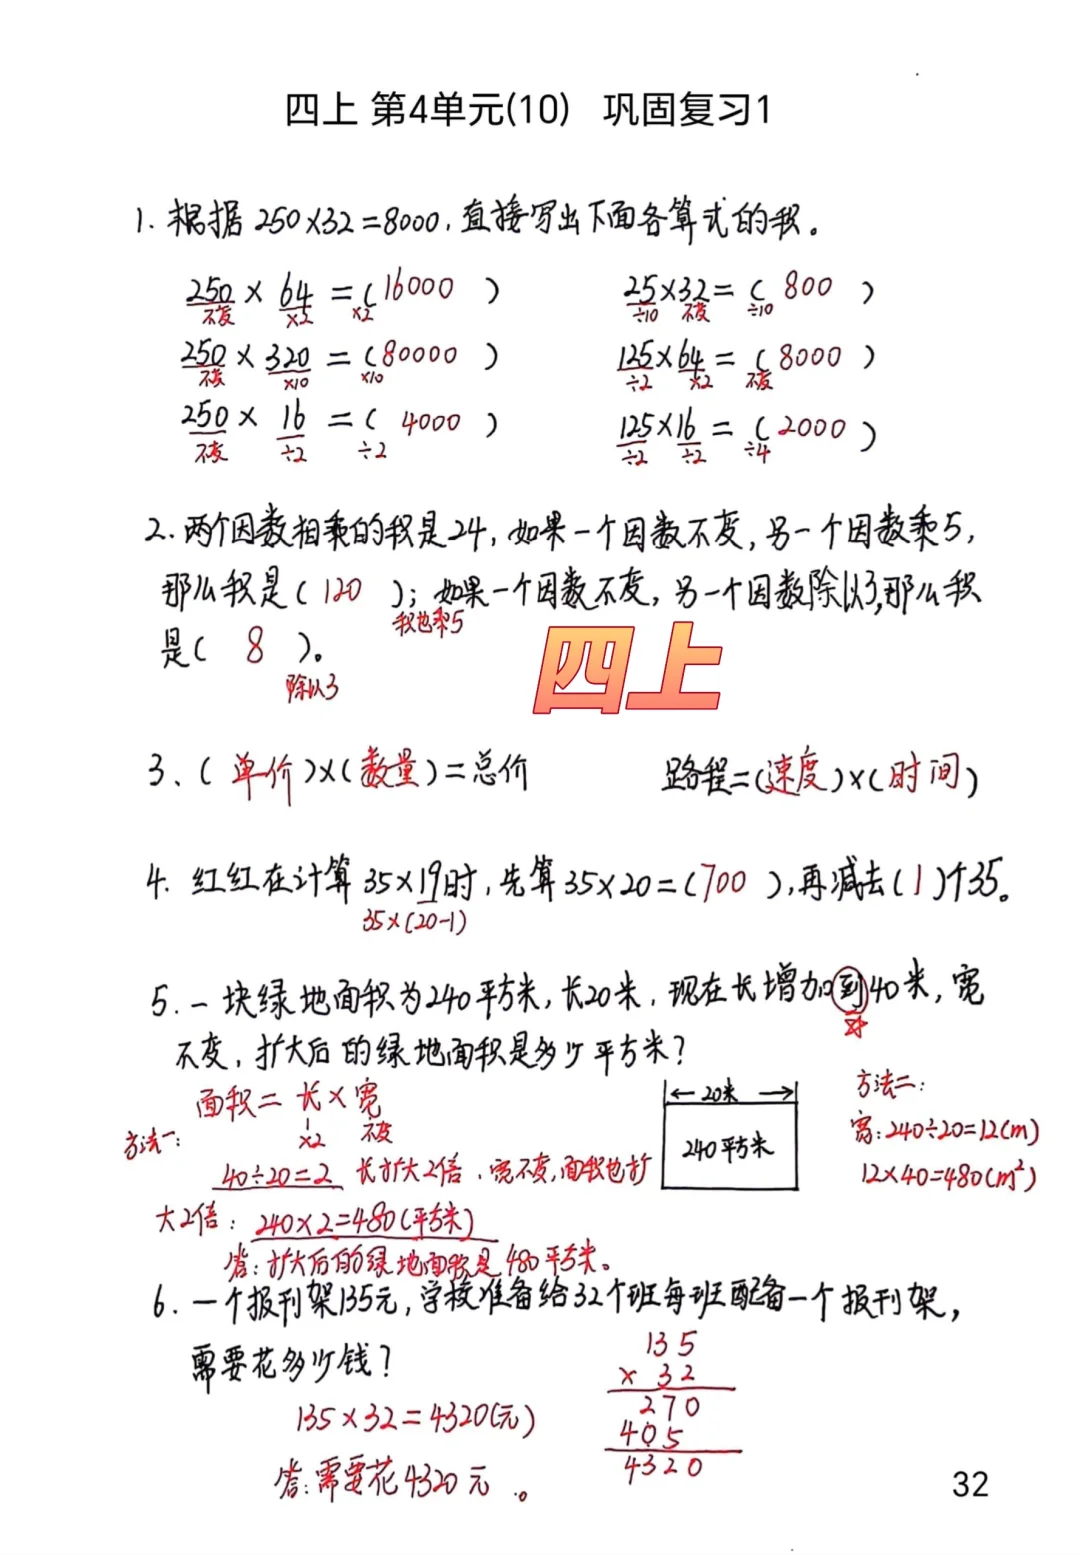 四上 第4单元(10) 巩固复习1
1. 根据250×32=8000,直接写出下面各算式的积。
250 × 64 =( 16000 ) 25×32=( 800 )
不变 ×2 ×2 ÷10 不变 ÷10
250 × 320 =( 80000 ) 125×64=( 8000 )
不变 ×10 ×10 ÷2 ×2 不变
250 × 16 =( 4000 ) 125×16=( 2000 )
不变 ÷2 ÷2 ÷2 ÷2 ÷4
2. 两个因数相乘的积是24,如果一个因数不变,另一个因数乘5,
那么积是( 120 );如果一个因数不变,另一个因数除以3,那么积
积也乘5
是( 8 )。
除以3
四上
3、( 单价 )×( 数量 )=总价 路程=(速度)×(时间)
4. 红红在计算35×19时,先算35×20=(700),再减去(1)个35。
35×(20-1)
5. 一块绿地面积为240平方米,长20米,现在长增加到40米,宽
不变,扩大后的绿地面积是多少平方米?
面积=长×宽
×2 不变
方法一:
40÷20=2 长扩大2倍,宽不变,面积也扩
大2倍: 240×2=480(平方米)
答:扩大后的绿地面积是480平方米。
←20米→
240平方米
方法二:
宽:240÷20=12(m)
12×40=480(m²)
6. 一个报刊架135元,学校准备给32个班每班配备一个报刊架,
需要花多少钱?
135×32=4320(元)
答:需要花4320元。
135
× 32
270
405
4320
32